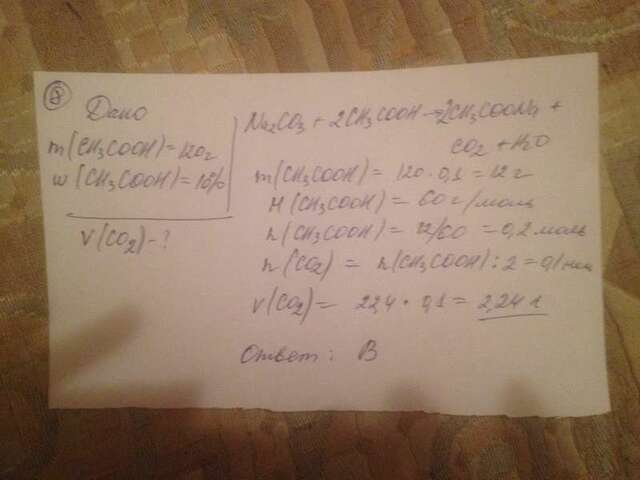 8
Дано
m(CH3COOH)=120г
w(CH3COOH)=10%
V(CO2)-?
Na2CO3+2CH3COOH→2CH3COONa+
CO2+H2O
m(CH3COOH)=120·0,1=12г
M(CH3COOH)=60г/моль
n(CH3COOH)=12/60=0,2моль
n(CO2)=n(CH3COOH):2=0,1моль
V(CO2)=22,4·0,1=2,24л
Ответ: В